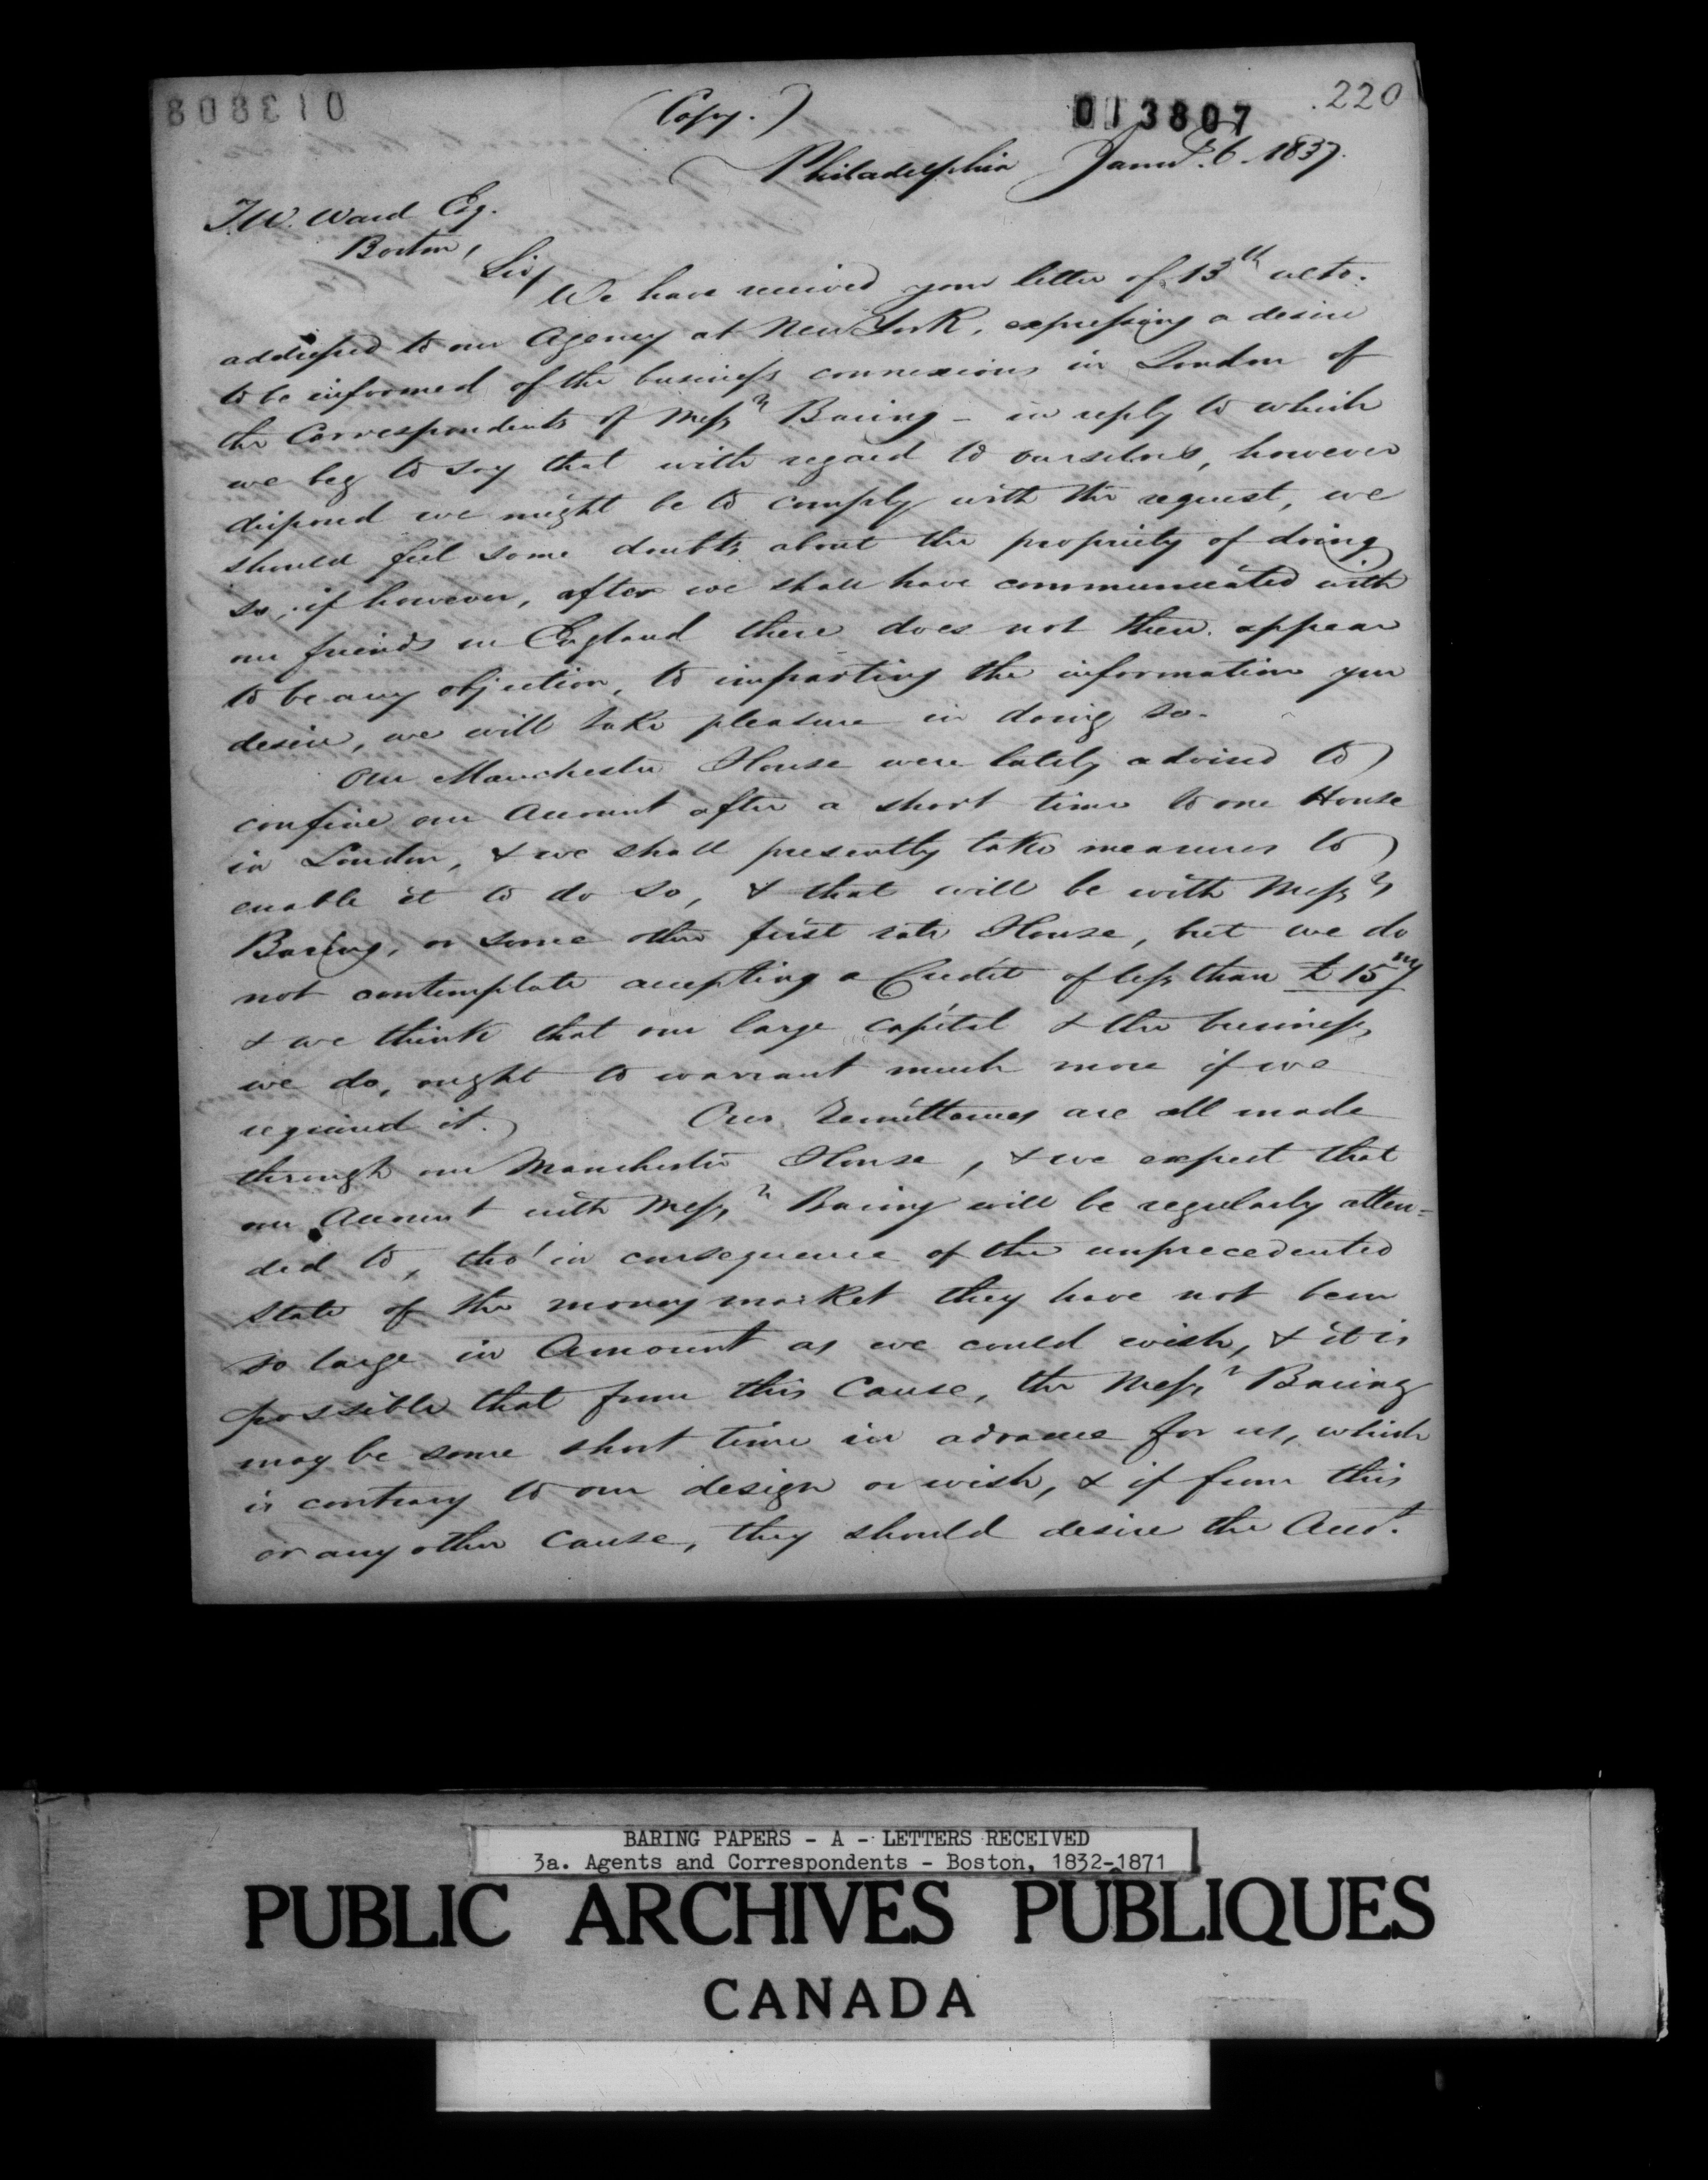 013808
013807
220
(Copy.)
Philadelphia Janu.y 6. 1837.
T.W. Ward Esq.
Boston,
Sir,
We have received your letter of 13th ulto.
addressed to our Agency at New York, expressing a desire
to be informed of the business connexions in London of
the Correspondents of Messrs Baring – in reply to which
we beg to say that with regard to ourselves, however
disposed we might be to comply with the request, we
should feel some doubts about the propriety of doing
so; if however, after we shall have communicated with
our friends in England there does not then appear
to be any objection, to imparting the information you
desire, we will take pleasure in doing so.
Our Manchester House were lately advised to
confine our Account after a short time to one House
in London, & we shall presently take measures to
enable it to do so, & that will be with Messrs
Baring, or some other first rate House, but we do
not contemplate accepting a Credit of less than £15m/
& we think that our large capital & the business
we do, ought to warrant much more if we
required it. Our Remittances are all made
through our Manchester House, & we expect that
our Account with Messrs Baring will be regularly atten=
ded to, tho' in consequence of the unprecedented
state of the money market they have not been
so large in Amount as we could wish, & it is
possible that from this Cause, the Messrs Baring
may be some short time in advance for us, which
is contrary to our design or wish, & if from this
or any other Cause, they should desire the Acco.t
BARING PAPERS - A - LETTERS RECEIVED
3a. Agents and Correspondents - Boston, 1832-1871
PUBLIC ARCHIVES PUBLIQUES
CANADA